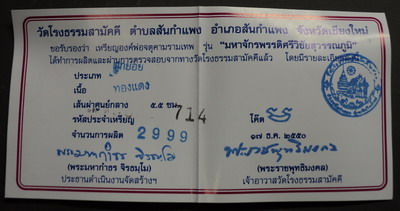 วัดโรงธรรมสามัคคี ตำบลสันกำแพง อำเภอสันกำแพง จังหวัดเชียงใหม่
ขอรับรองว่า เหรียญองค์พ่อจตุคามรามเทพ รุ่น "มหาจักรพรรดิศรีวิชัยสุวรรณภูมิ"
ได้ทำการผลิตและผ่านการตรวจสอบจากทางวัดโรงธรรมสามัคคีแล้ว โดยมีรายละเอียด
ประเภท
เนื้อ ทองแดง
เส้นผ่าศูนย์กลาง ๕.๕ ซม.
รหัสประจำเหรียญ 714 โค๊ต
จำนวนการผลิต 2999 ๑๗ ธ.ค. ๒๕๕๐
(พระมหากำธร จิรธมฺโม) (พระราชพุทธิมงคล)
ประธานดำเนินงานจัดสร้างฯ เจ้าอาวาสวัดโรงธรรมสามัคคี